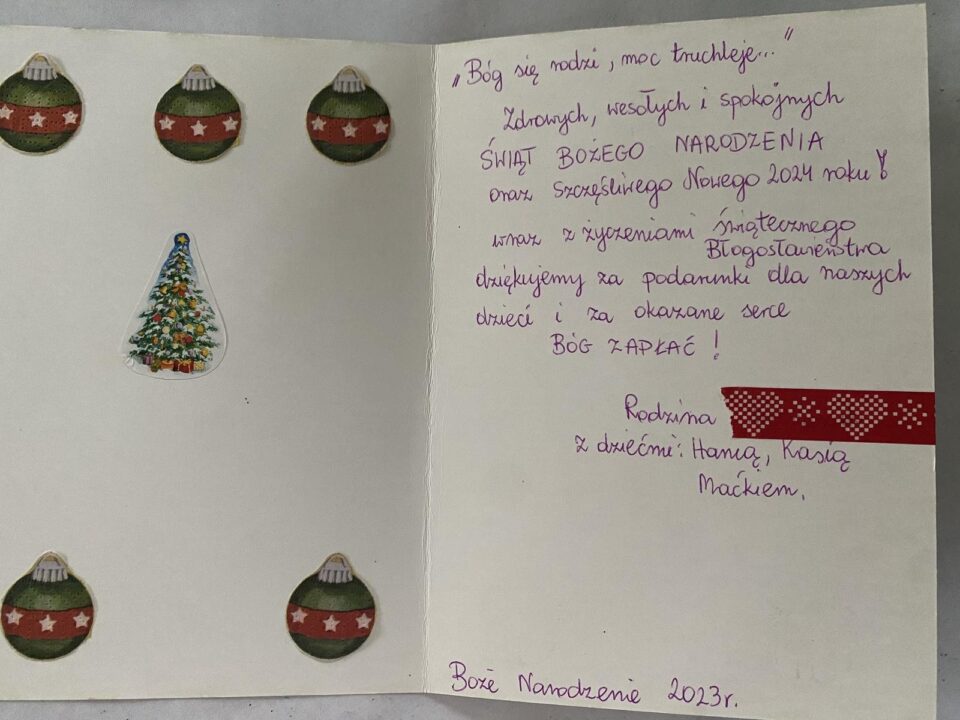 „Bóg się rodzi, moc truchleje..."
Zdrowych, wesołych i spokojnych
ŚWIĄT BOŻEGO NARODZENIA
oraz Szczęśliwego Nowego 2024 roku!
wraz z życzeniami świątecznego
Błogosławieństwa
dziękujemy za podarunki dla naszych
dzieci i za okazane serce
BÓG ZAPŁAĆ!
Rodzina
z dziećmi: Hanią, Kasią
Maćkiem.
Boże Narodzenie 2023r.